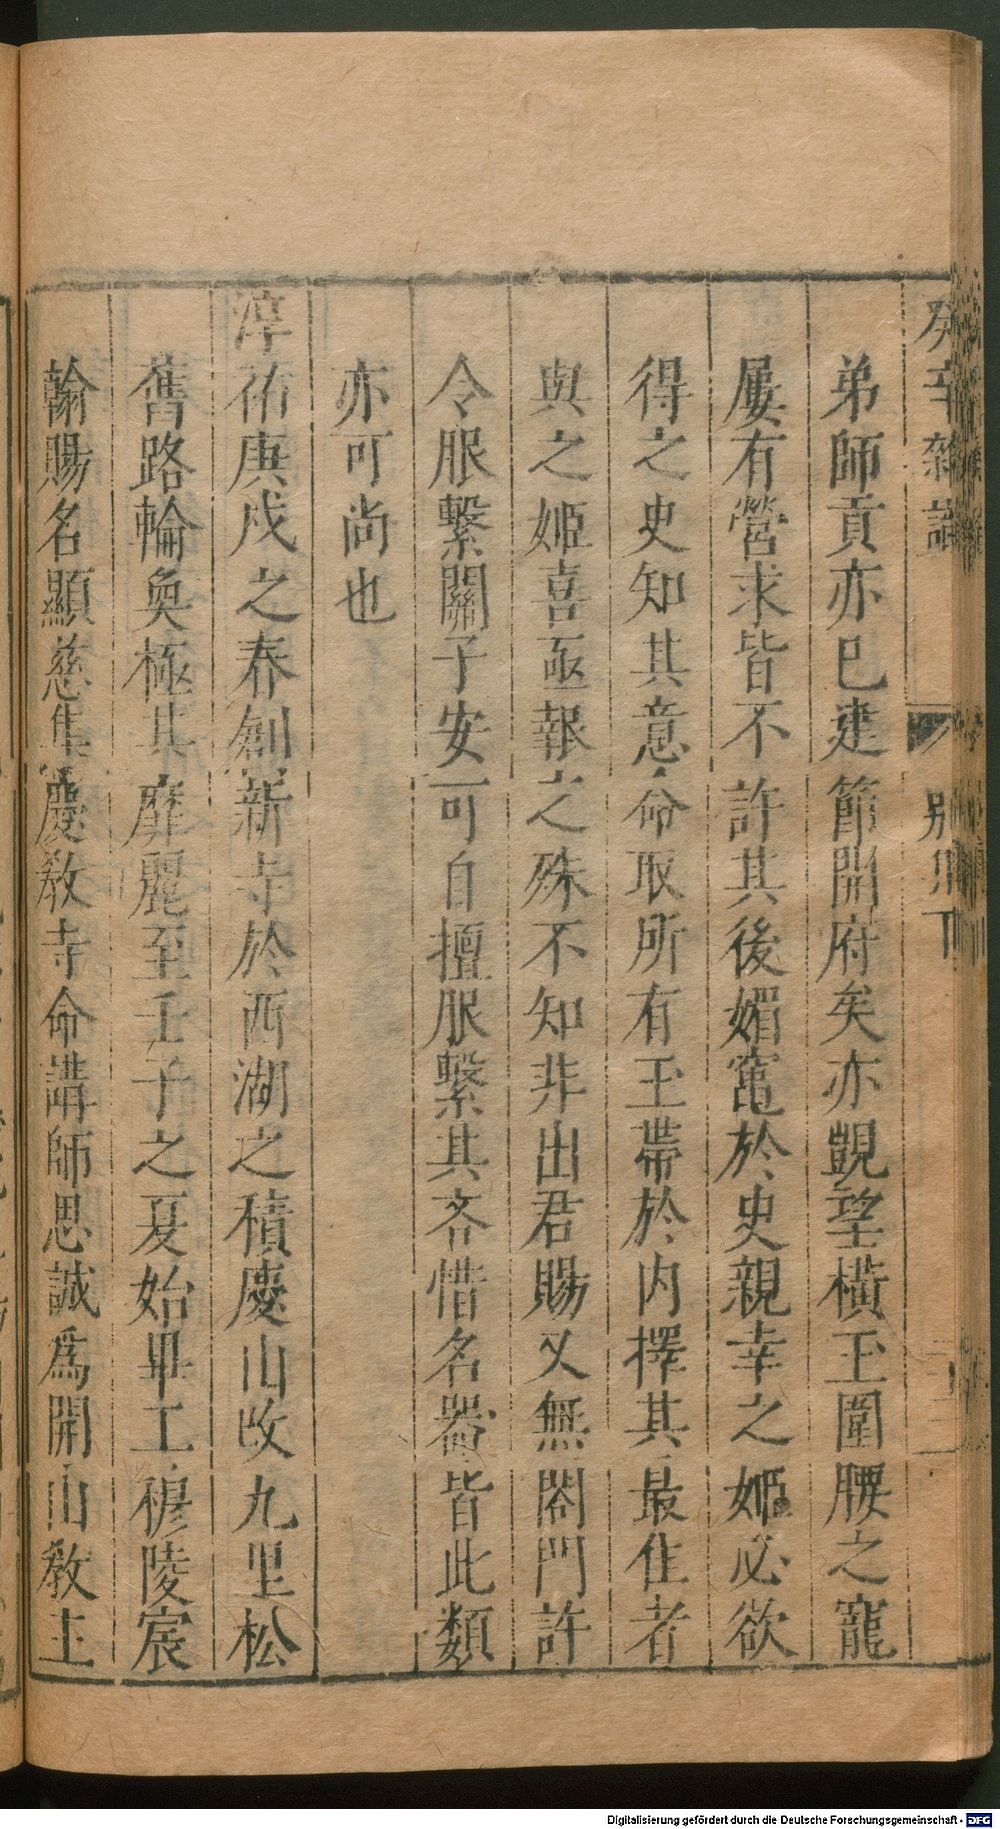 癸辛雜識 別集下
弟師貢亦已建節開府矣亦覬望橫玉圍腰之寵
屢有營求皆不許其後媚竈於史親幸之姬必欲
得之史知其意命取所有玉帶於内擇其最佳者
與之姬喜亟報之殊不知非出君賜又無閤門許
令服繫關子安可自擅服繫其吝惜名器皆此類
亦可尚也
淳祐庚戍之春創新寺於西湖之積慶山改九里松
舊路輪奐極其靡麗至壬子之夏始畢工穆陵宸
翰賜名顯慈集慶教寺命講師思誠爲開山教主
Digitalisierung gefördert durch die Deutsche Forschungsgemeinschaft - DFG